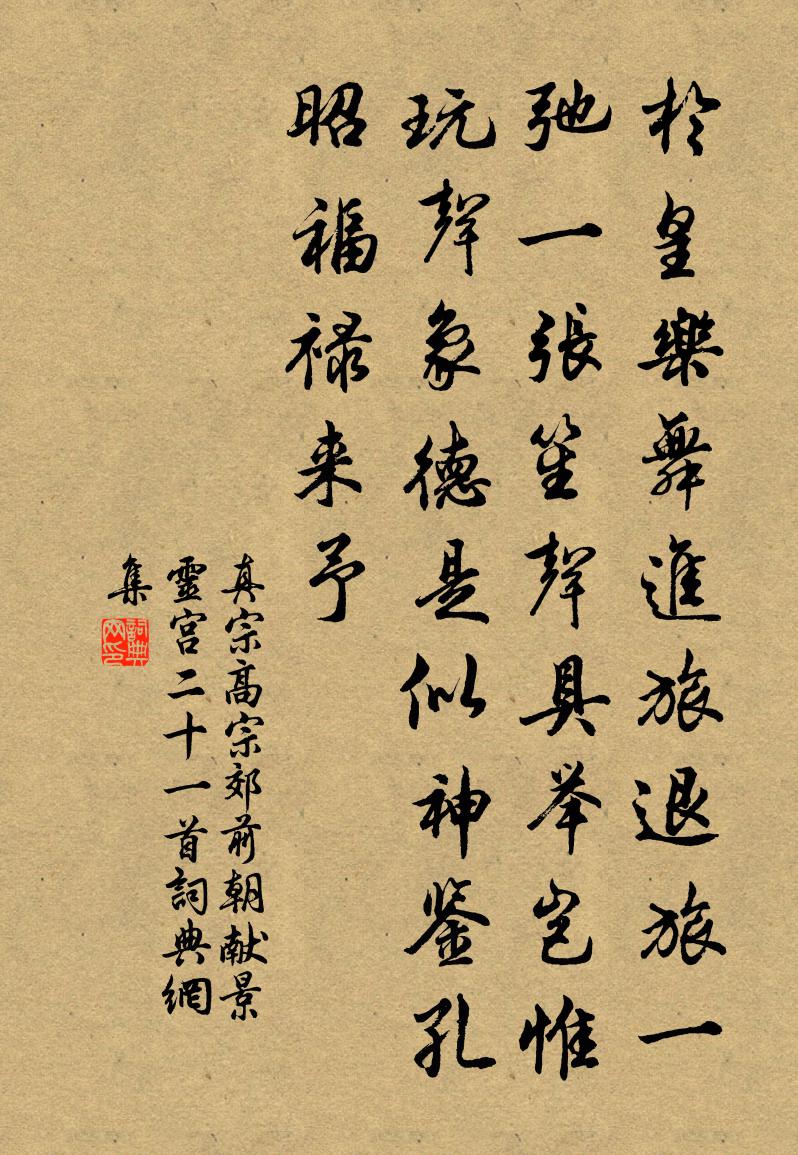 於皇樂舞進旅退旅一
弛一張笙聲具举岂惟
玩聲象德是似神鉴孔
昭福禄来予
真宗高宗郊前朝献景
靈宫二十一首詞典網
集
詞典網印